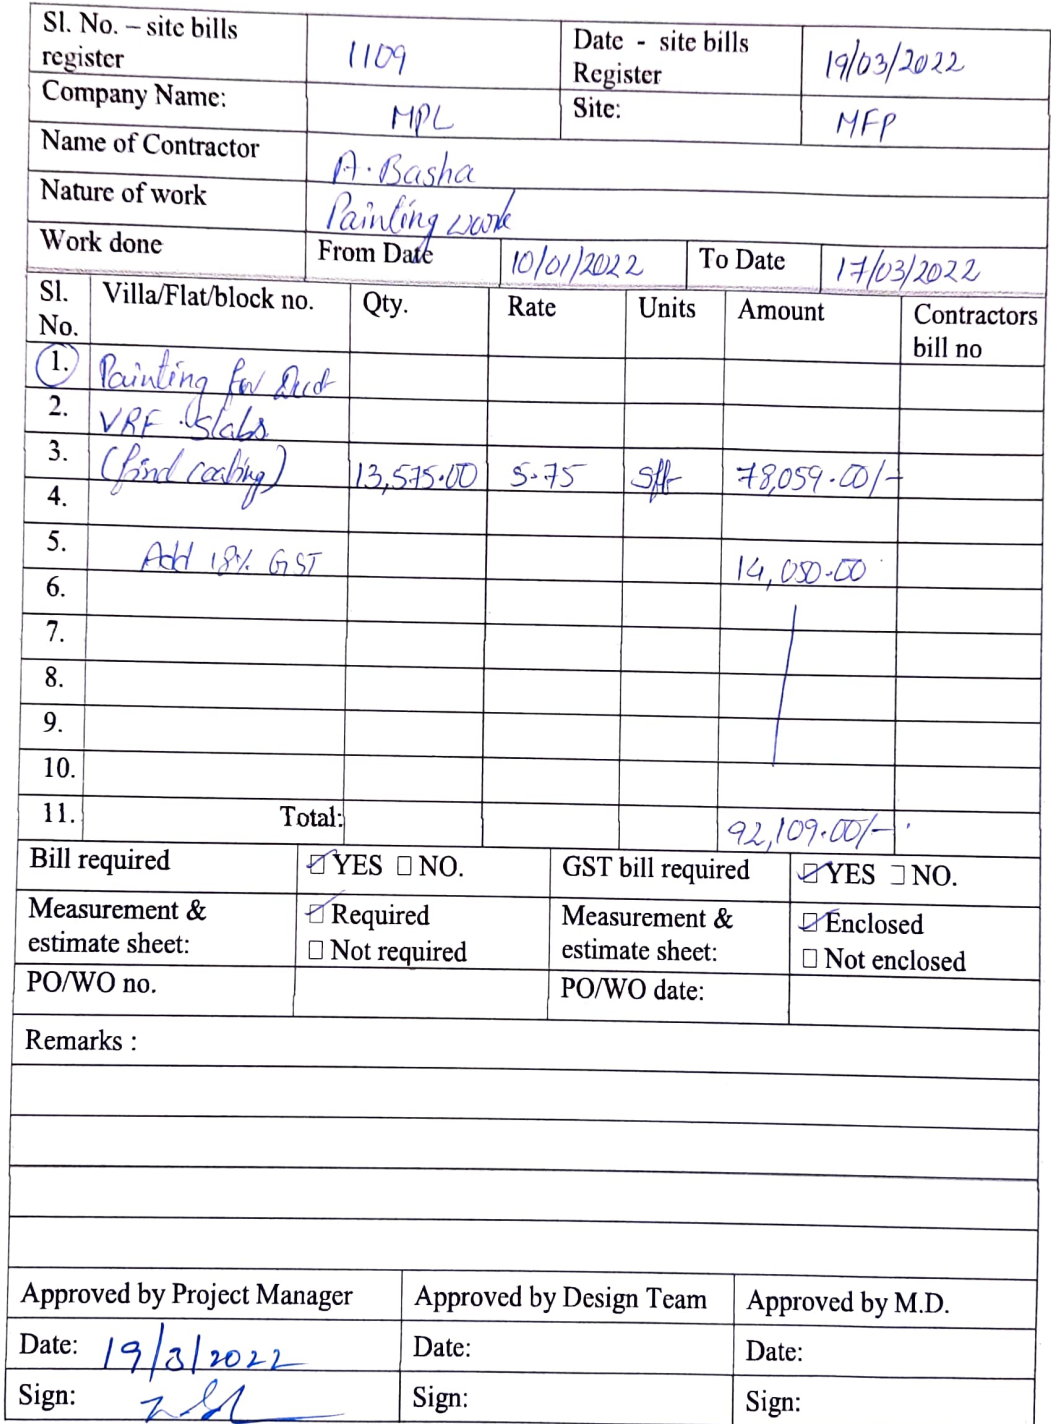 Sl. No. – site bills register 1109 Date - site bills Register 19/03/2022
Company Name: MPL Site: MFP
Name of Contractor A. Basha
Nature of work Painting work
Work done From Date 10/01/2022 To Date 17/03/2022
Sl. No. Villa/Flat/block no. Qty. Rate Units Amount Contractors bill no
1. Painting for Duct
2. VRF slabs
3. (find coating) 13,575.00 5.75 Sft 78,059.00/-
4.
5. Add 18% GST 14,050.00
6.
7.
8.
9.
10.
11. Total: 92,109.00/-
Bill required YES NO. GST bill required YES NO.
Measurement & estimate sheet: Required Measurement & estimate sheet: Enclosed
Not required Not enclosed
PO/WO no. PO/WO date:
Remarks :
Approved by Project Manager Approved by Design Team Approved by M.D.
Date: 19/3/2022 Date: Date:
Sign: Sign: Sign: